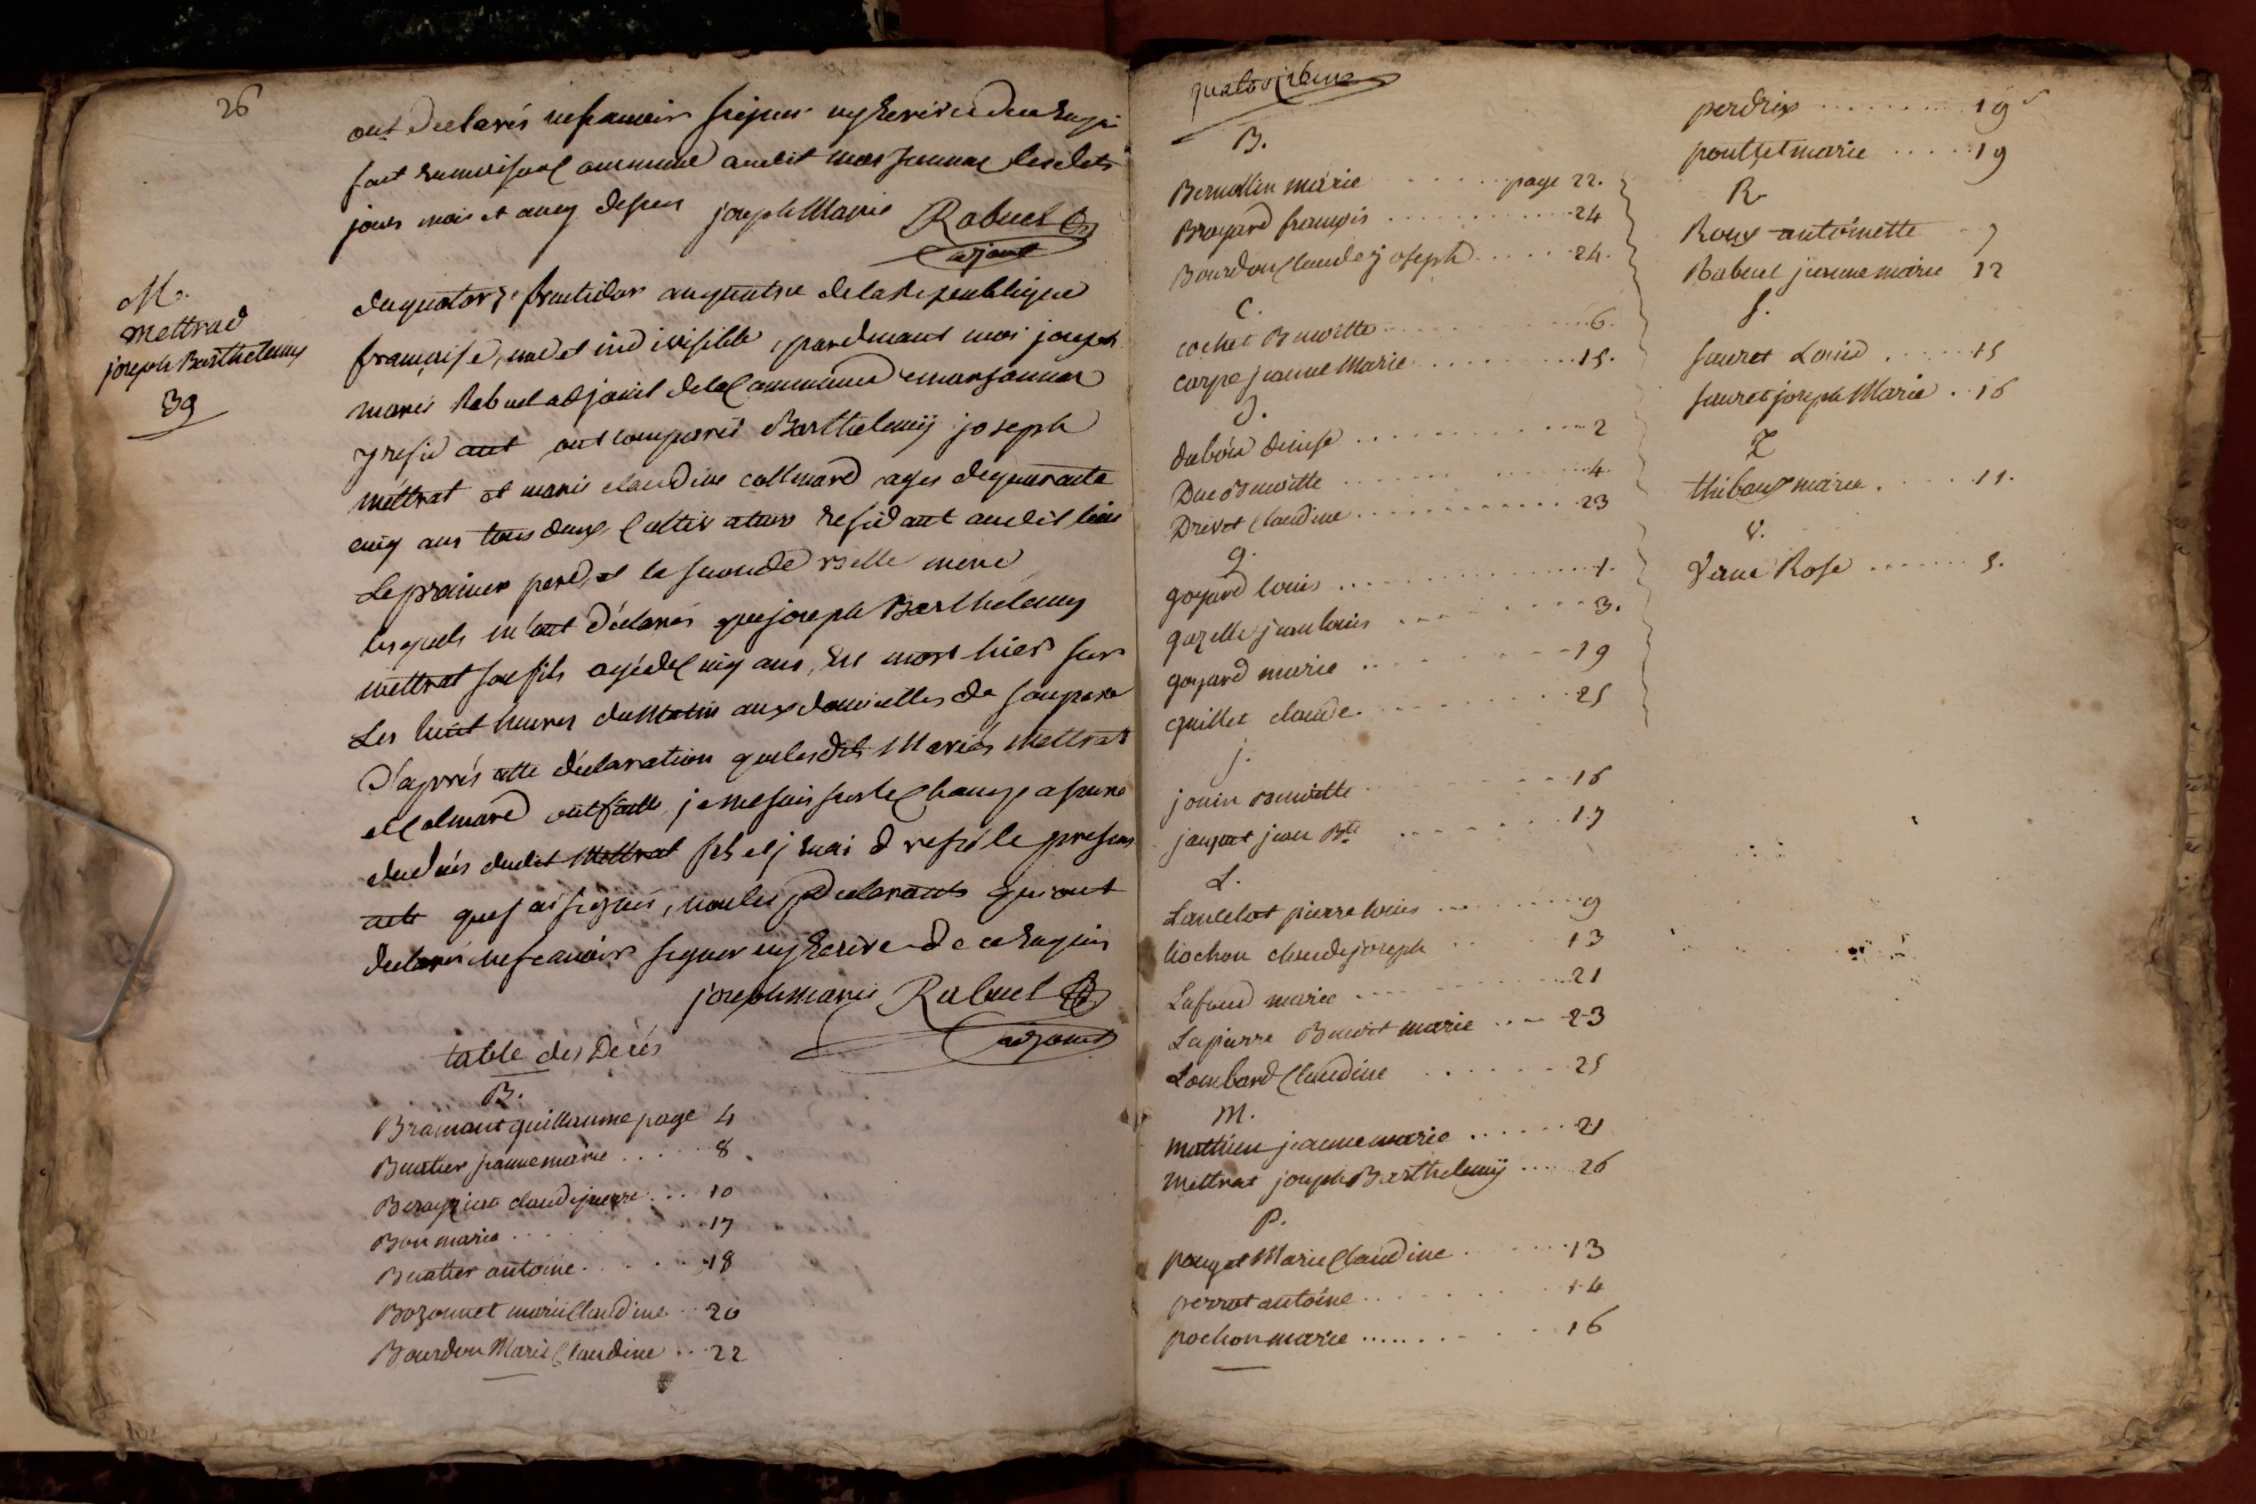 26
ont declarés ne scavoir signer ny Ecrire de ce Enqui
fait en maison commune audit marsonnas lesdits
jours mois et an cy dessus joseph Marie Rabuel
adjoint
M.
Mettrad
joseph Barthelemy
39
du quatorze fructidor an quatre de la Republique
francaise, une et indivisible, pardevant moi joseph
marie Rabuel adjoint de la Commune marsonnas
y residant ont comparus Barthelemÿ joseph
mettrat et marie claudine collmard ages de quarante
cinq ans tous deux Cultivateurs residant audit lieu
Le premier pere, et la seconde belle mere
lesquels m'ont déclarés que joseph Barthelemy
mettrat son fils agé de Cinq ans, Est mort hier sur
Les huit heures du Matin aux domicilles de son pere
D'aprrés cette déclaration que lesdits Mariés Mettrat
et Colmard ont faitte, je me suis sur le Champ assuré
du décés dudit Mettrat fils et j'en ai dressé le present
acte que j'ai signés, non les Declarants qui ont
declarés ne scavoir signer ny Ecrire de ce Enquis
joseph marie Rabuel
adjoint
table des Décés
B.
Bramant guillaume page 4
Buatier jeanne marie . . . . 8.
claude pierre . . . 10
Bon marie . . . 17
Buatier antoine . . . . . 18
Bozonnet marie Claudine . . 20
Bourdon Marie Claudine . . . 22
B.
marie . . . . page 22.
Broyard françois . . . . 24
Bourdon Claude joseph . . . . 24.
C.
cochet Benoitte . . . . 6.
Carpe jeanne Marie . . . . 15.
D.
dubois denise . . . . 2
Duc Benoitte . . . . 4.
Drevet Claudine . . . . 23
g.
goyard louis . . . . 1.
gazelle jean louis . . . . 3.
goyard marie . . . . 19
guillet claude . . . . 25
j.
jouin Benoitte . . . . 16
jean Bte . . . . 17
L.
Lancelot pierre louis . . . . 9
liochon claude joseph . . . . 13
Lafond marie . . . . 21
Lapierre Benoit marie . . . . 23
Lombard Claudine . . . . 25
M.
Mathieu jeanne marie . . . . 21
Mettrat joseph Barthelemÿ . . . . 26
P.
pouget Marie Claudine . . . . 13
perrat antoine . . . . 14
pochon marie . . . . 16
perdrix . . . . 19
marie . . . . 19
R.
Roux antoinette . . 7
Rabuel jeanne marie 12
S.
Sauret Louis . . . . 15
Sauret joseph Marie . 16
T
thiboux marie . . . . 11.
V.
Rose . . . . 5.